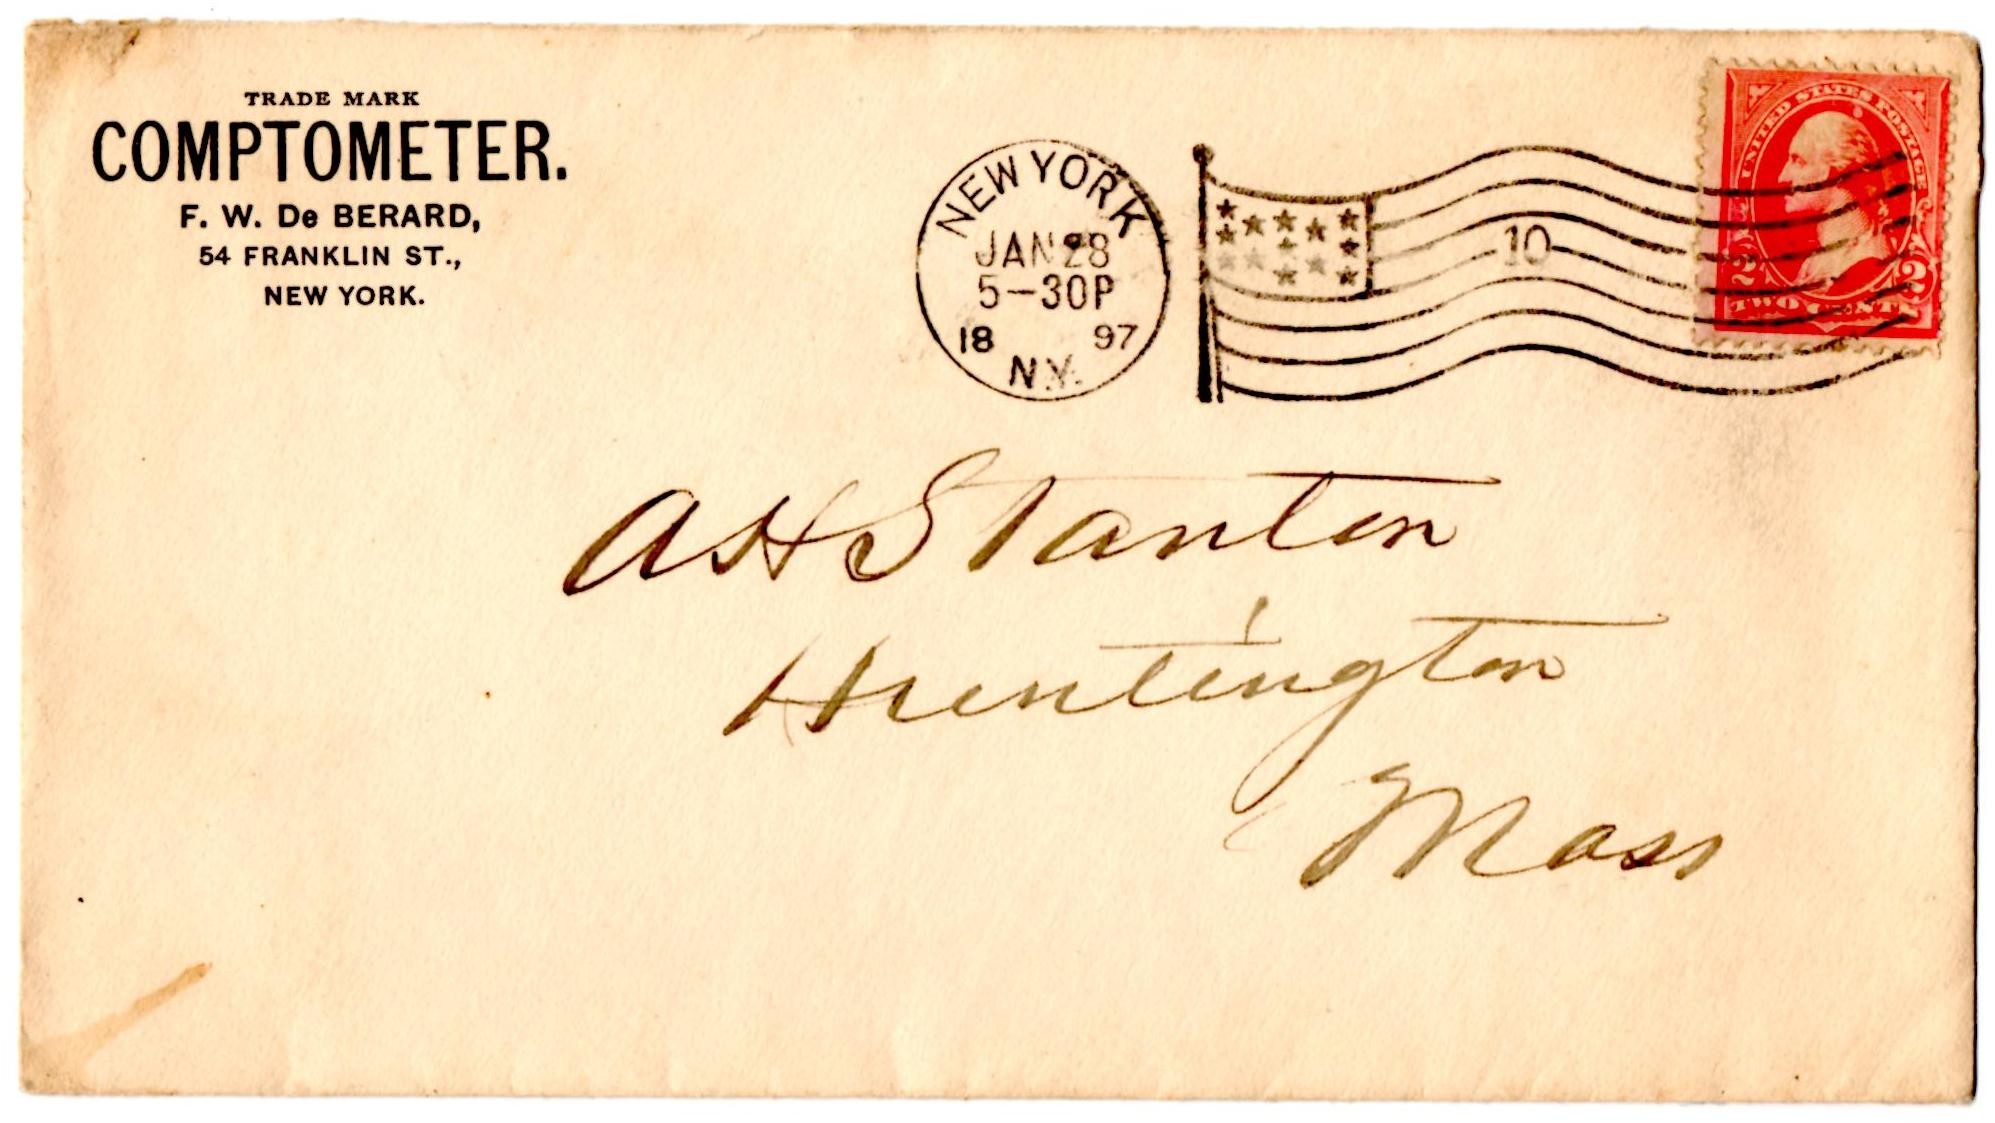 TRADE MARK
COMPTOMETER.
F. W. De BERARD,
54 FRANKLIN ST.,
NEW YORK.
NEW YORK
JAN 28
5-30P
18 97
N.Y.
10
UNITED STATES POSTAGE
2 2
TWO CENTS
A H Stanton
Huntington
Mass